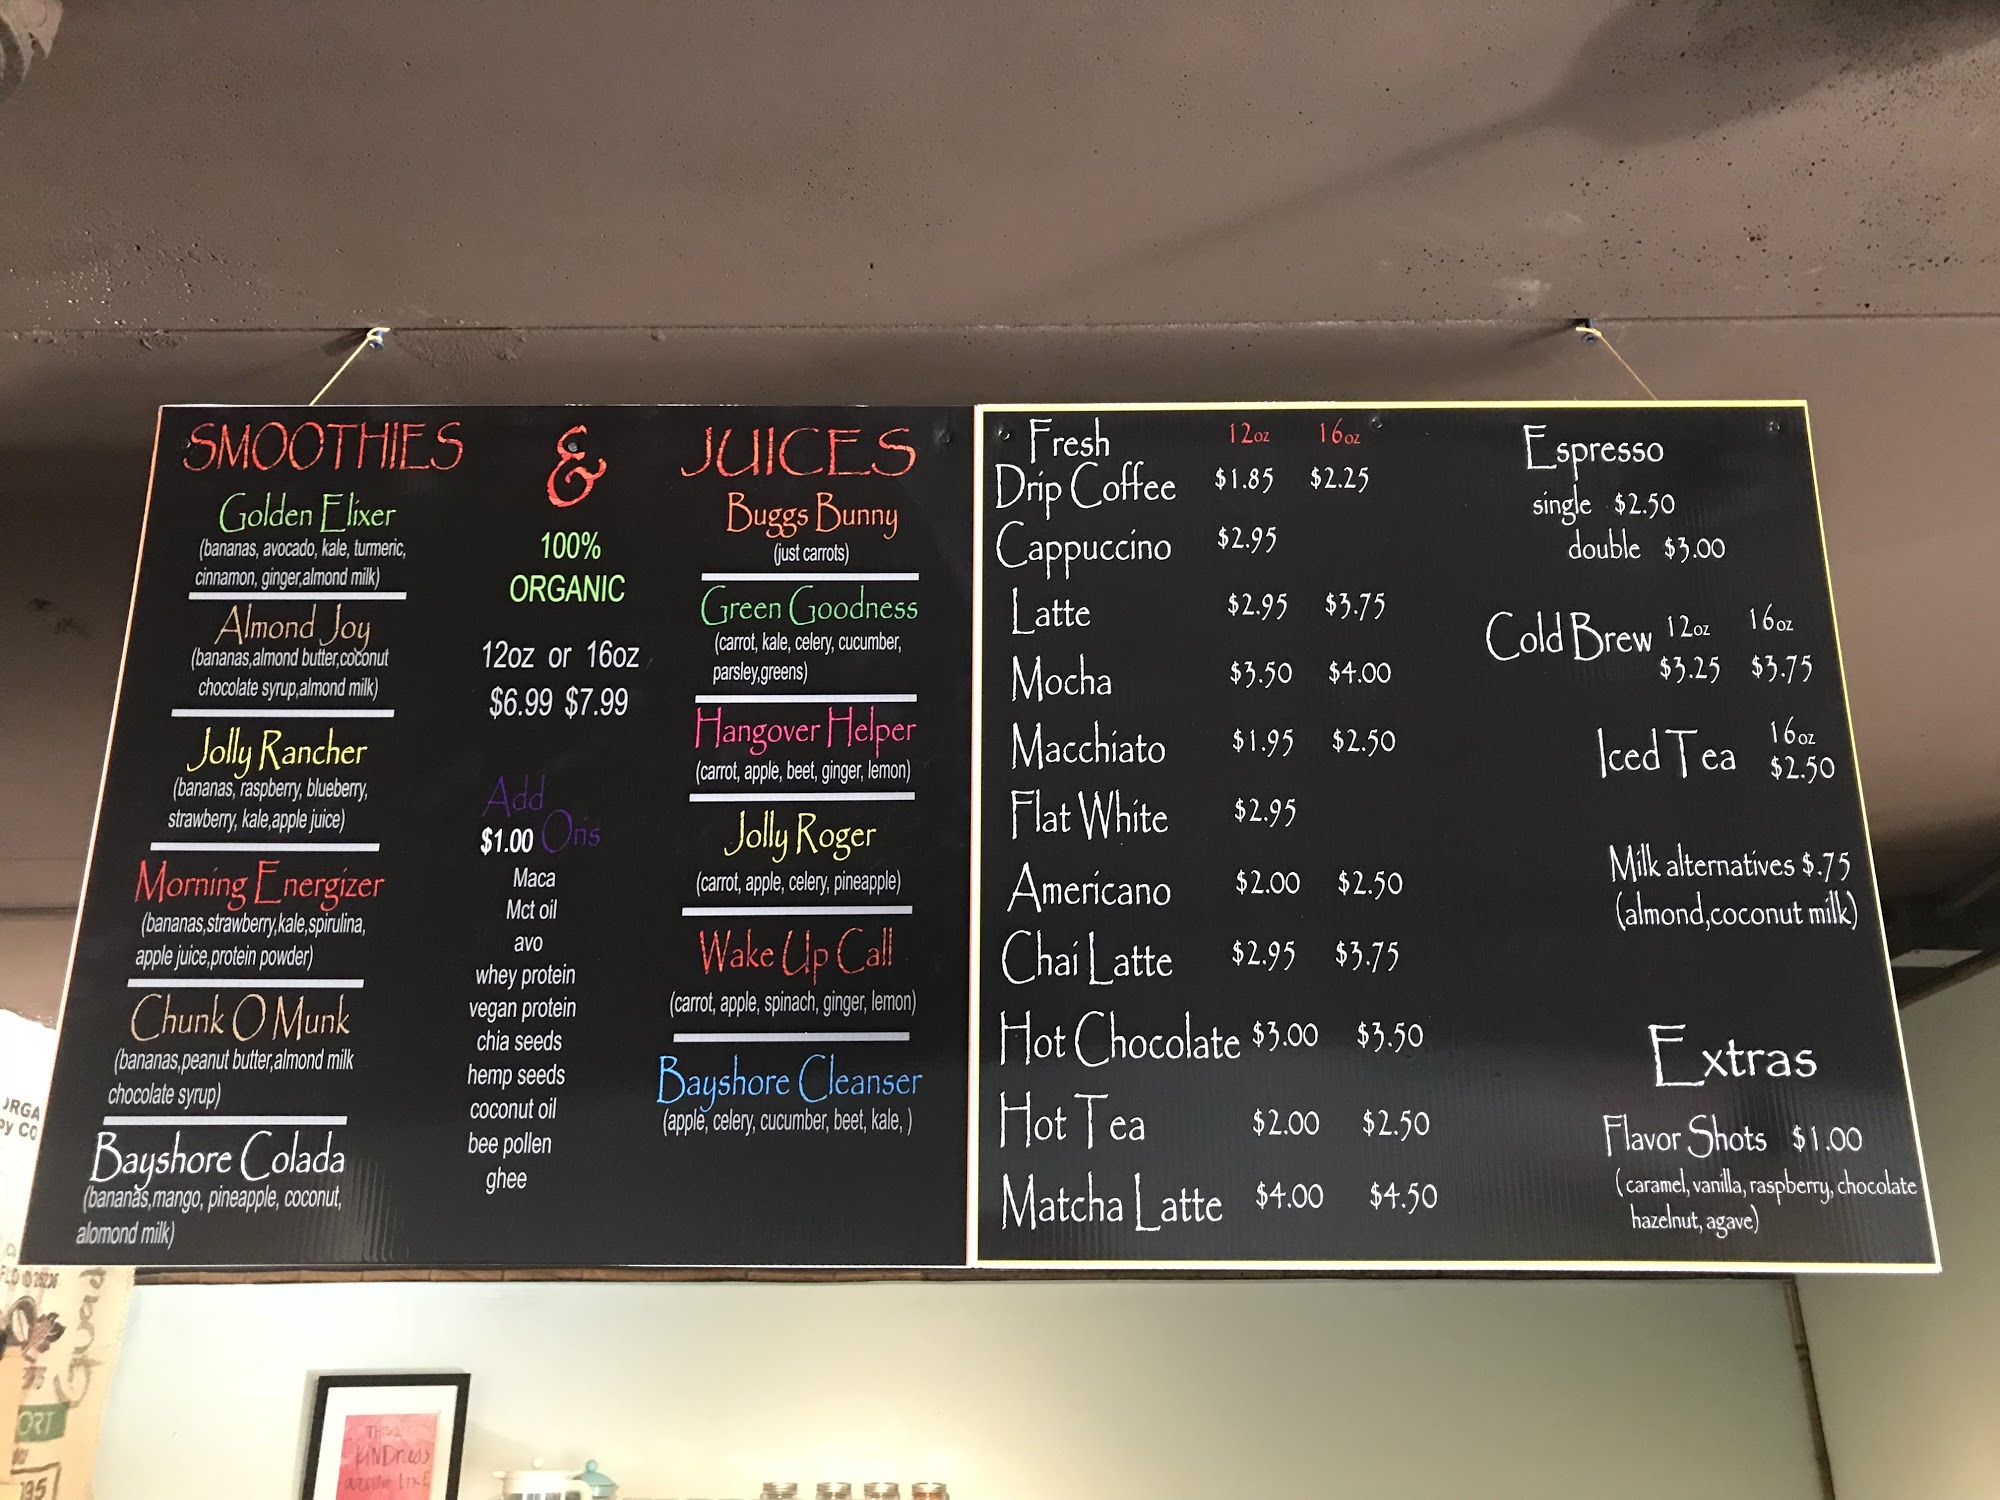 SMOOTHIES & JUICES
Golden Elixer
(bananas, avocado, kale, turmeric,
cinnamon, ginger,almond milk)
Almond Joy
(bananas,almond butter,coconut
chocolate syrup,almond milk)
Jolly Rancher
(bananas, raspberry, blueberry,
strawberry, kale,apple juice)
Morning Energizer
(bananas,strawberry,kale,spirulina,
apple juice,protein powder)
Chunk O Munk
(bananas,peanut butter,almond milk
chocolate syrup)
Bayshore Colada
(bananas,mango, pineapple, coconut,
alomond milk)
100%
ORGANIC
12oz or 16oz
$6.99 $7.99
Add
$1.00 Ons
Maca
Mct oil
avo
whey protein
vegan protein
chia seeds
hemp seeds
coconut oil
bee pollen
ghee
Buggs Bunny
(just carrots)
Green Goodness
(carrot, kale, celery, cucumber,
parsley,greens)
Hangover Helper
(carrot, apple, beet, ginger, lemon)
Jolly Roger
(carrot, apple, celery, pineapple)
Wake Up Call
(carrot, apple, spinach, ginger, lemon)
Bayshore Cleanser
(apple, celery, cucumber, beet, kale, )
Fresh 12oz 16oz
Drip Coffee $1.85 $2.25
Cappuccino $2.95
Latte $2.95 $3.75
Mocha $3.50 $4.00
Macchiato $1.95 $2.50
Flat White $2.95
Americano $2.00 $2.50
Chai Latte $2.95 $3.75
Hot Chocolate $3.00 $3.50
Hot Tea $2.00 $2.50
Matcha Latte $4.00 $4.50
Espresso
single $2.50
double $3.00
Cold Brew 12oz 16oz
$3.25 $3.75
Iced Tea 16oz
$2.50
Milk alternatives $.75
(almond,coconut milk)
Extras
Flavor Shots $1.00
(caramel, vanilla, raspberry, chocolate
hazelnut, agave)
KINDness